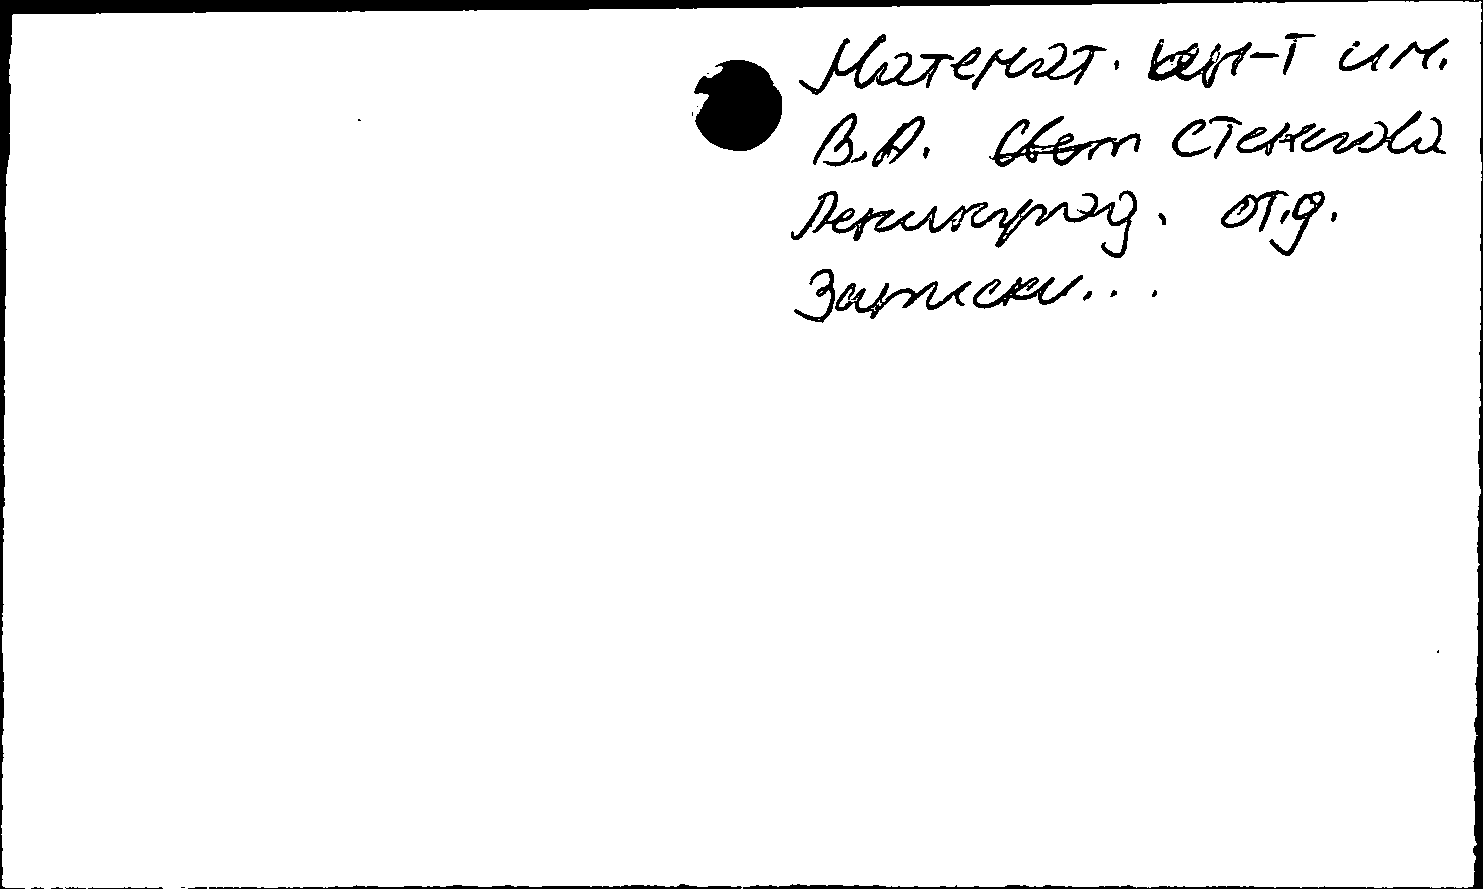 Математ. ин-т им.
В.А. Стеклова
Ленинград. отд.
Записки...